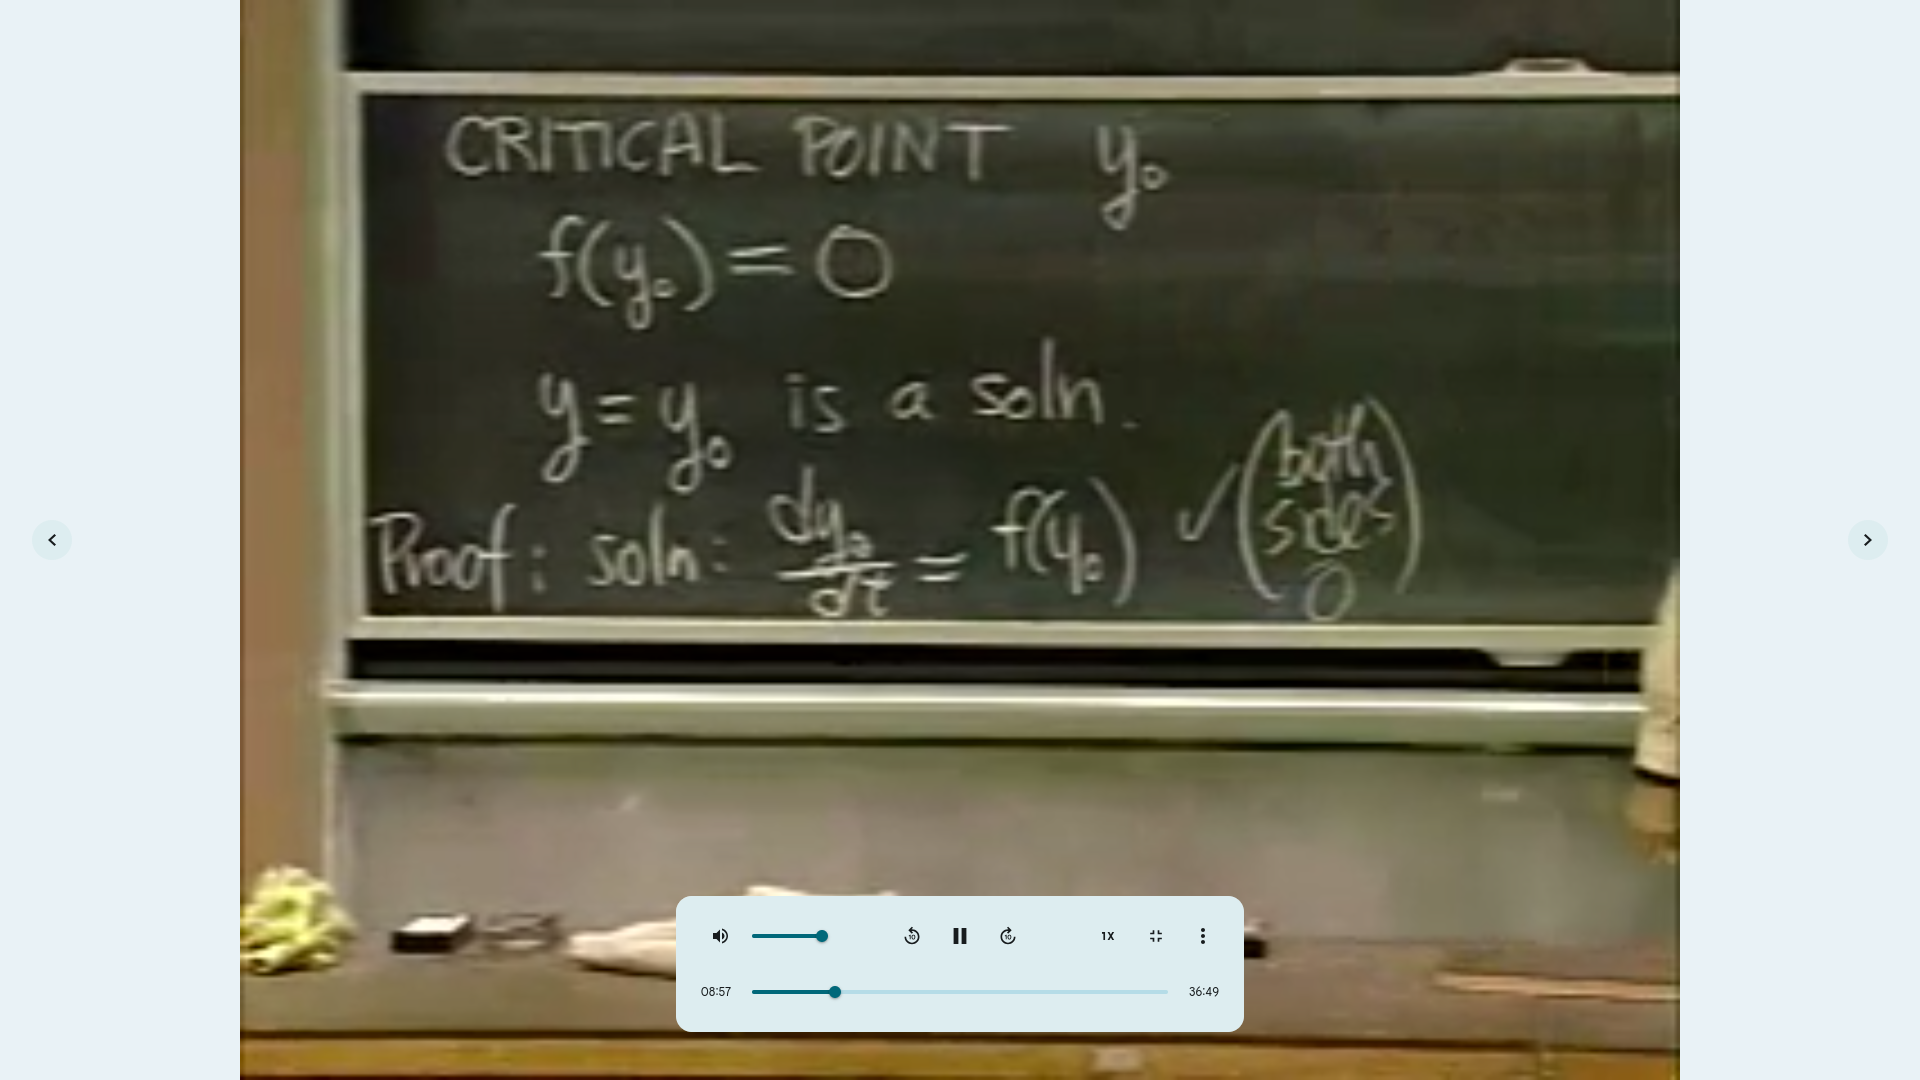 CRITICAL POINT y₀
f(y₀) = 0
y = y₀ is a soln.
Proof: soln: dy₀/dt = f(y₀) ✓ (both sides 0)
10 10 1X
08:57 36:49